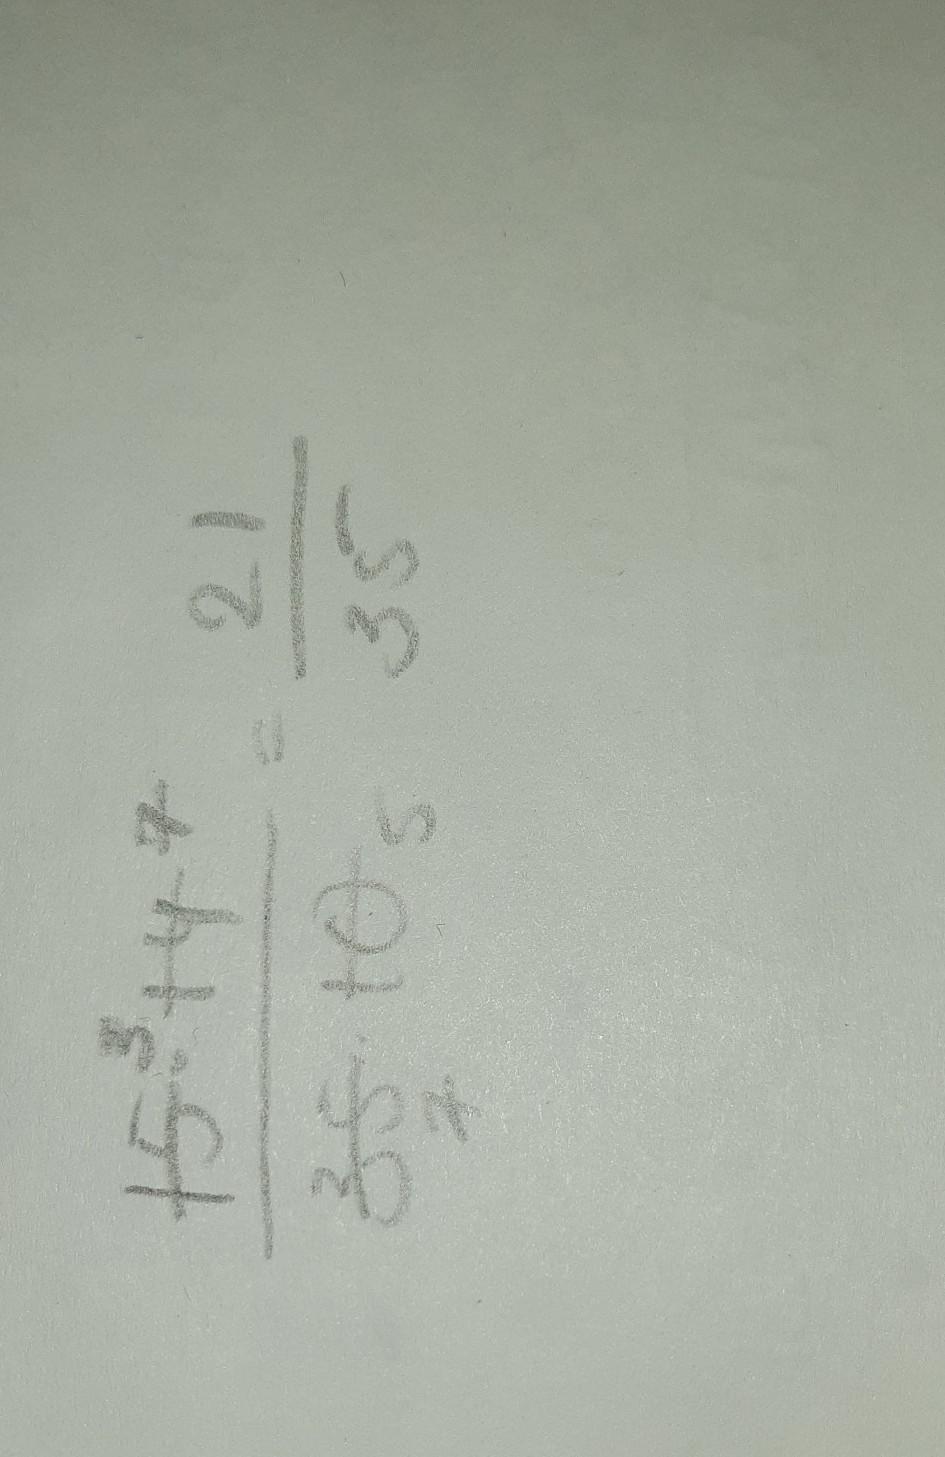 15³ · 14⁷ / 35₇ · 10₅ = 21 / 35